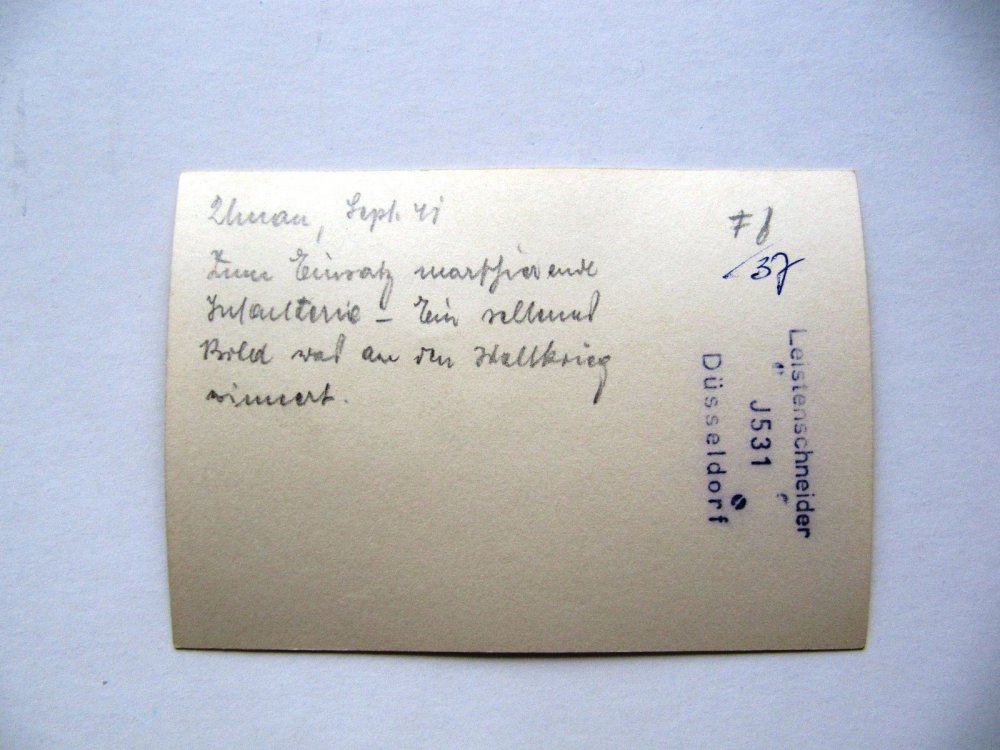 Uman, Sept. 41
Zum Einsatz marschierende
Infanterie – Ein seltenes
Bild was an den Weltkrieg
erinnert.
/37
Leistenschneider
J531
Düsseldorf